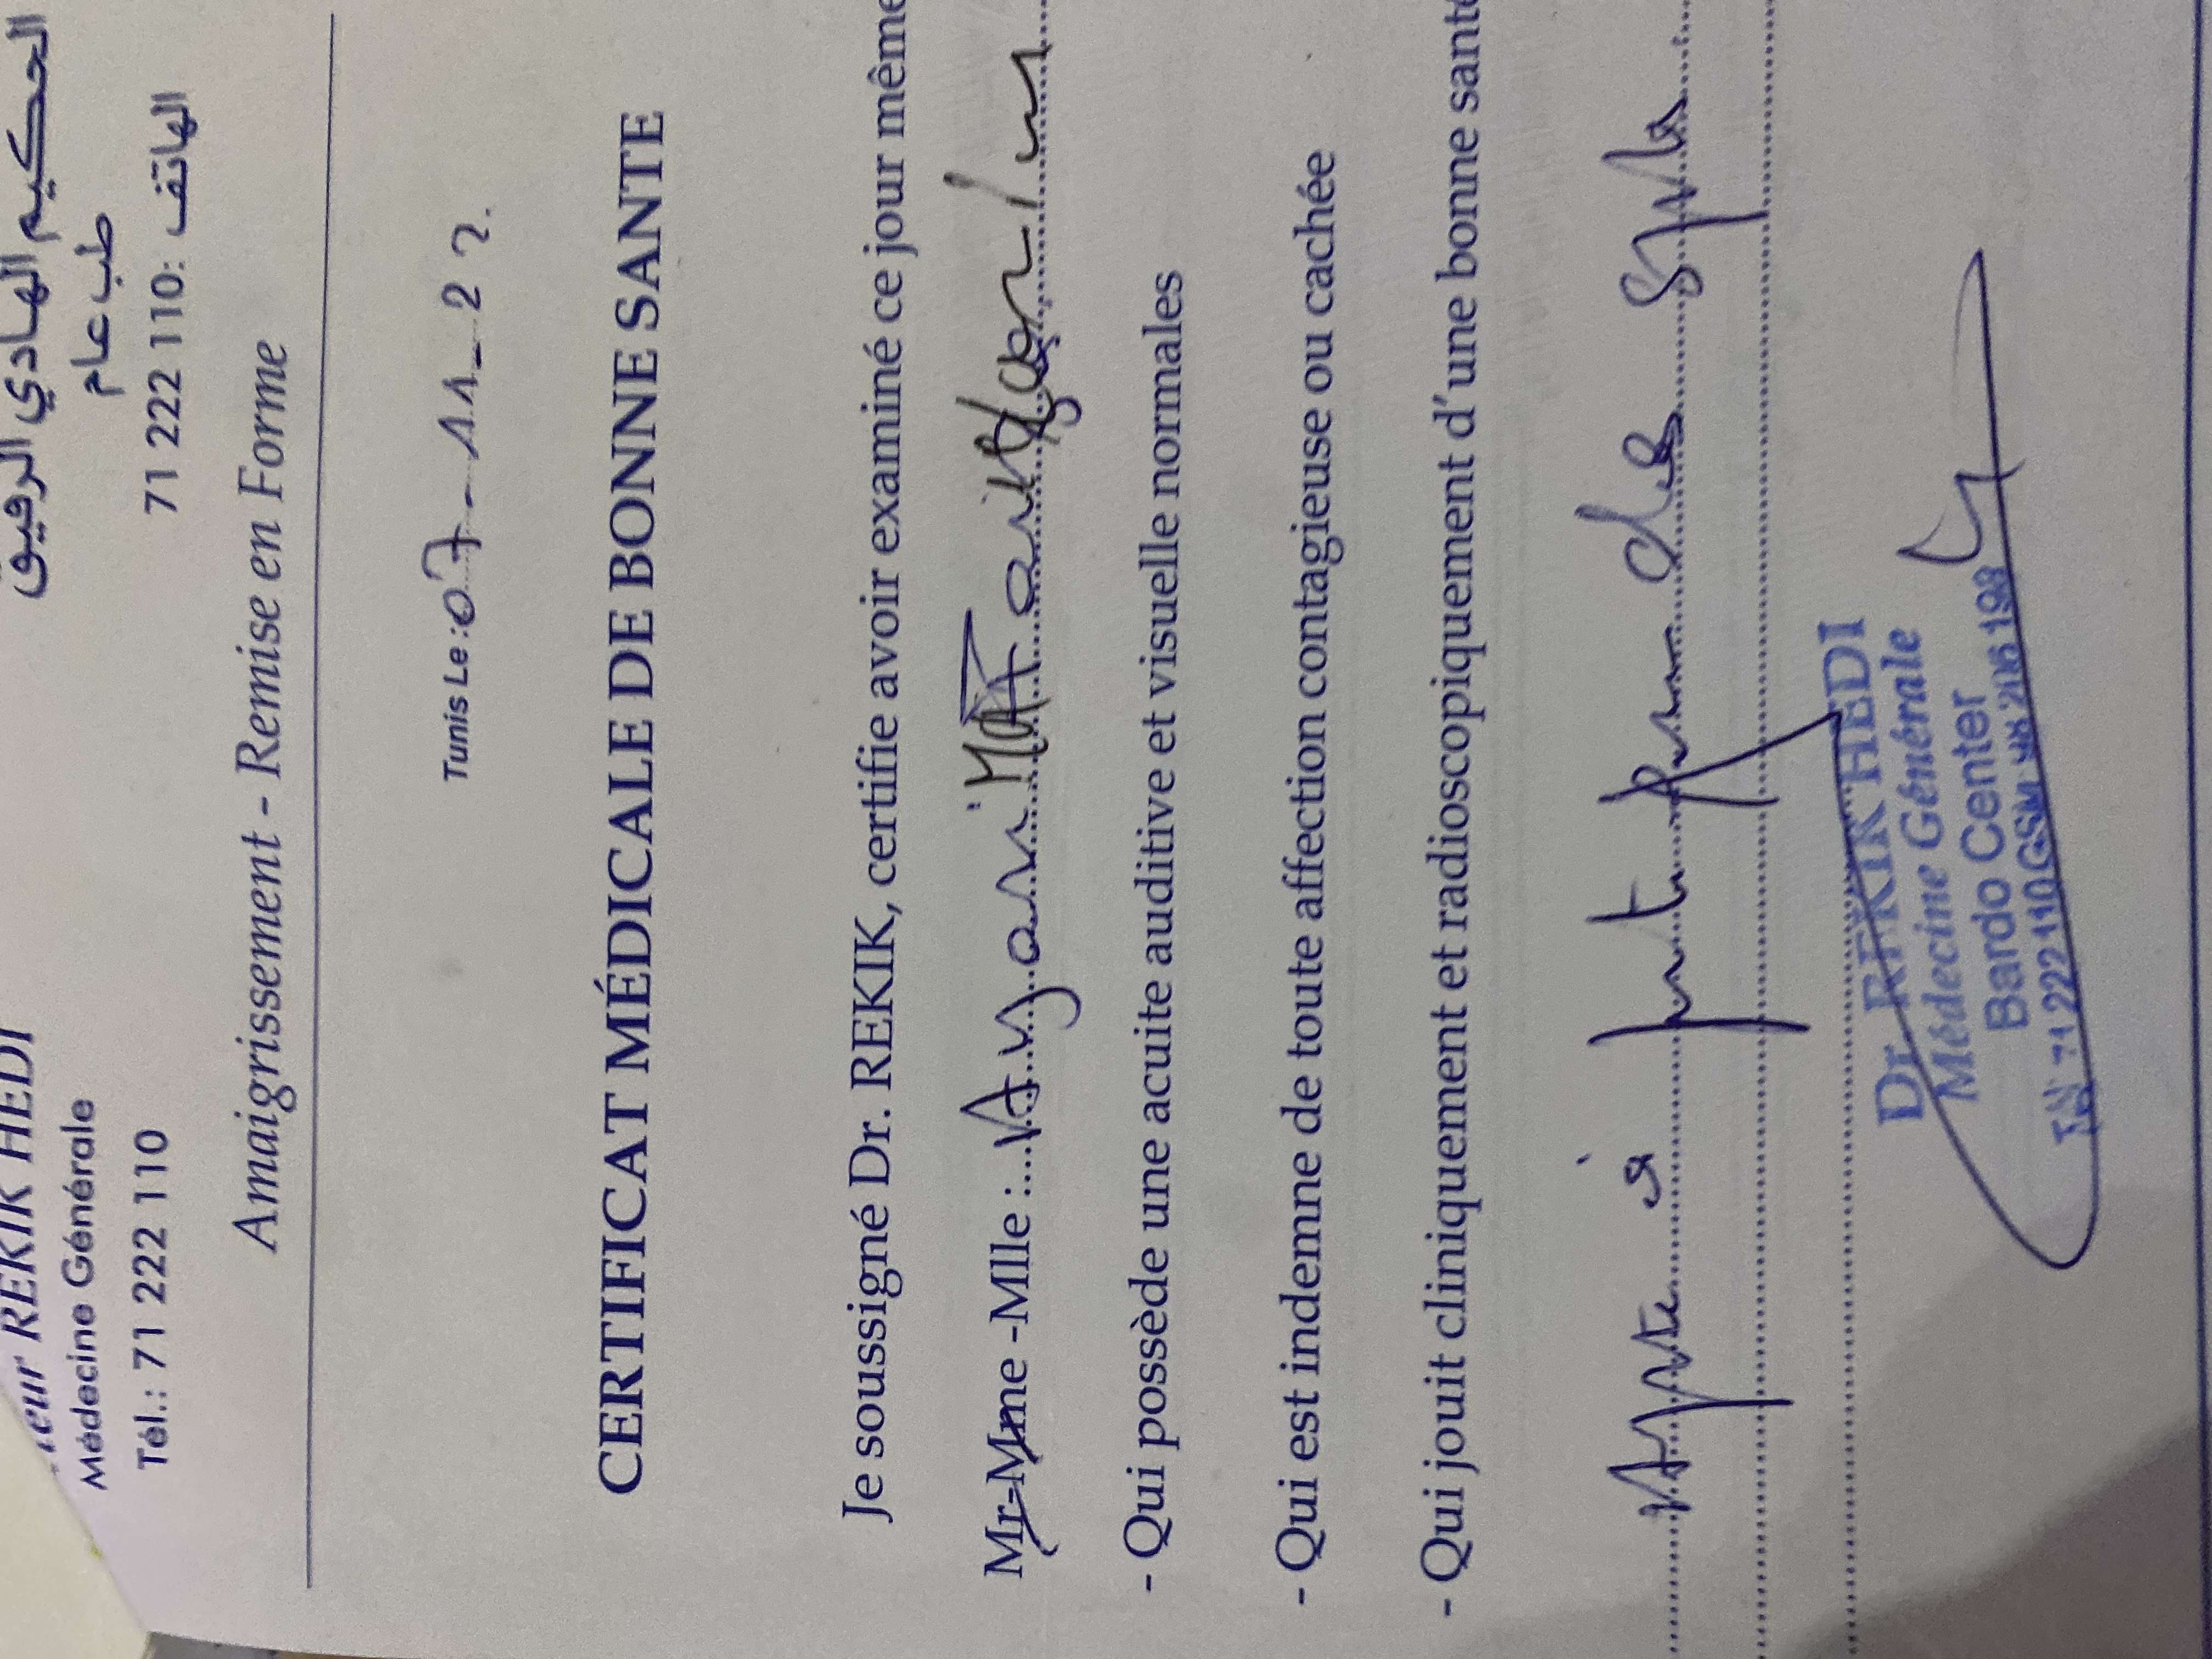 REKIK HEDI
Médecine Générale
Tél.: 71 222 110
الحكيم الهادي الرقيق
طب عام
الهاتف: 71 222 110
Amaigrissement - Remise en Forme
Tunis Le : 07-11-22.
CERTIFICAT MÉDICALE DE BONNE SANTE
Je soussigné Dr. REKIK, certifie avoir examiné ce jour même
Mr-Mme -Mlle :
- Qui possède une acuite auditive et visuelle normales
- Qui est indemne de toute affection contagieuse ou cachée
- Qui jouit cliniquement et radioscopiquement d'une bonne santé
Apte à
Dr. REKIK HEDI
Médecine Générale
Bardo Center
71 222 110 GSM: 98 206 198